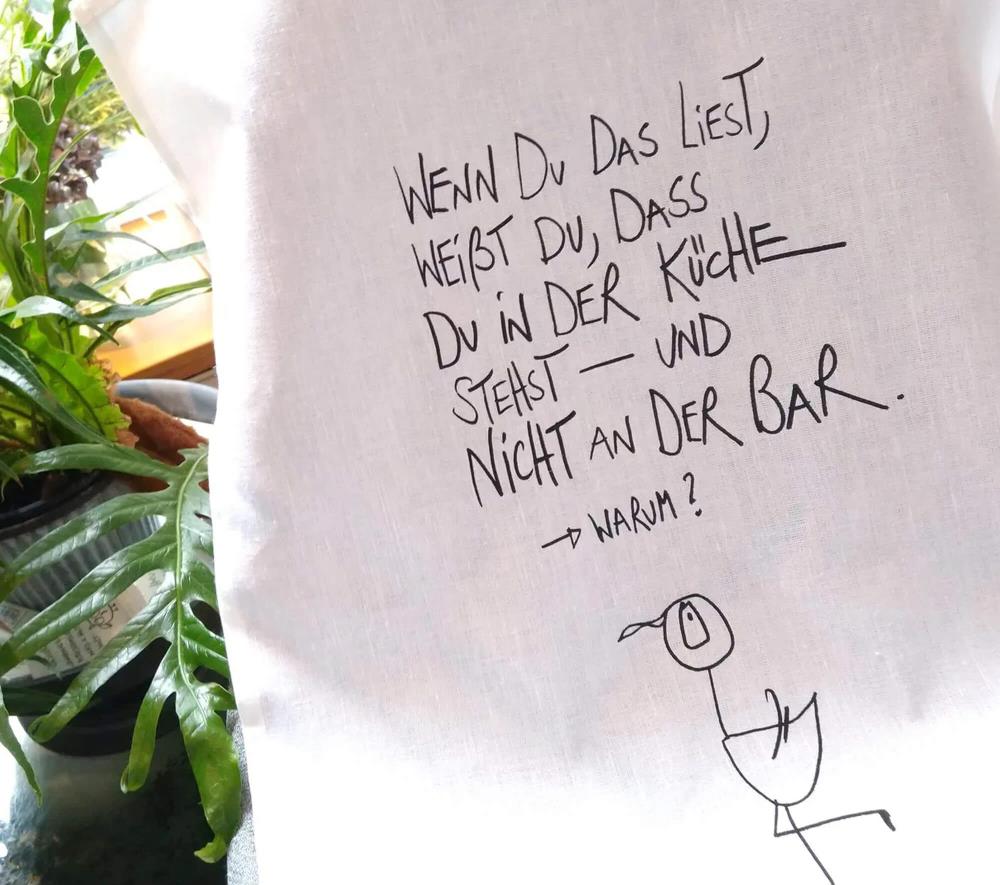 WENN DU DAS LiEST,
WEißT DU, DASS
DU iN DER KÜCHE
STEHST — UND
NiCHT AN DER BAR.
→ WARUM?